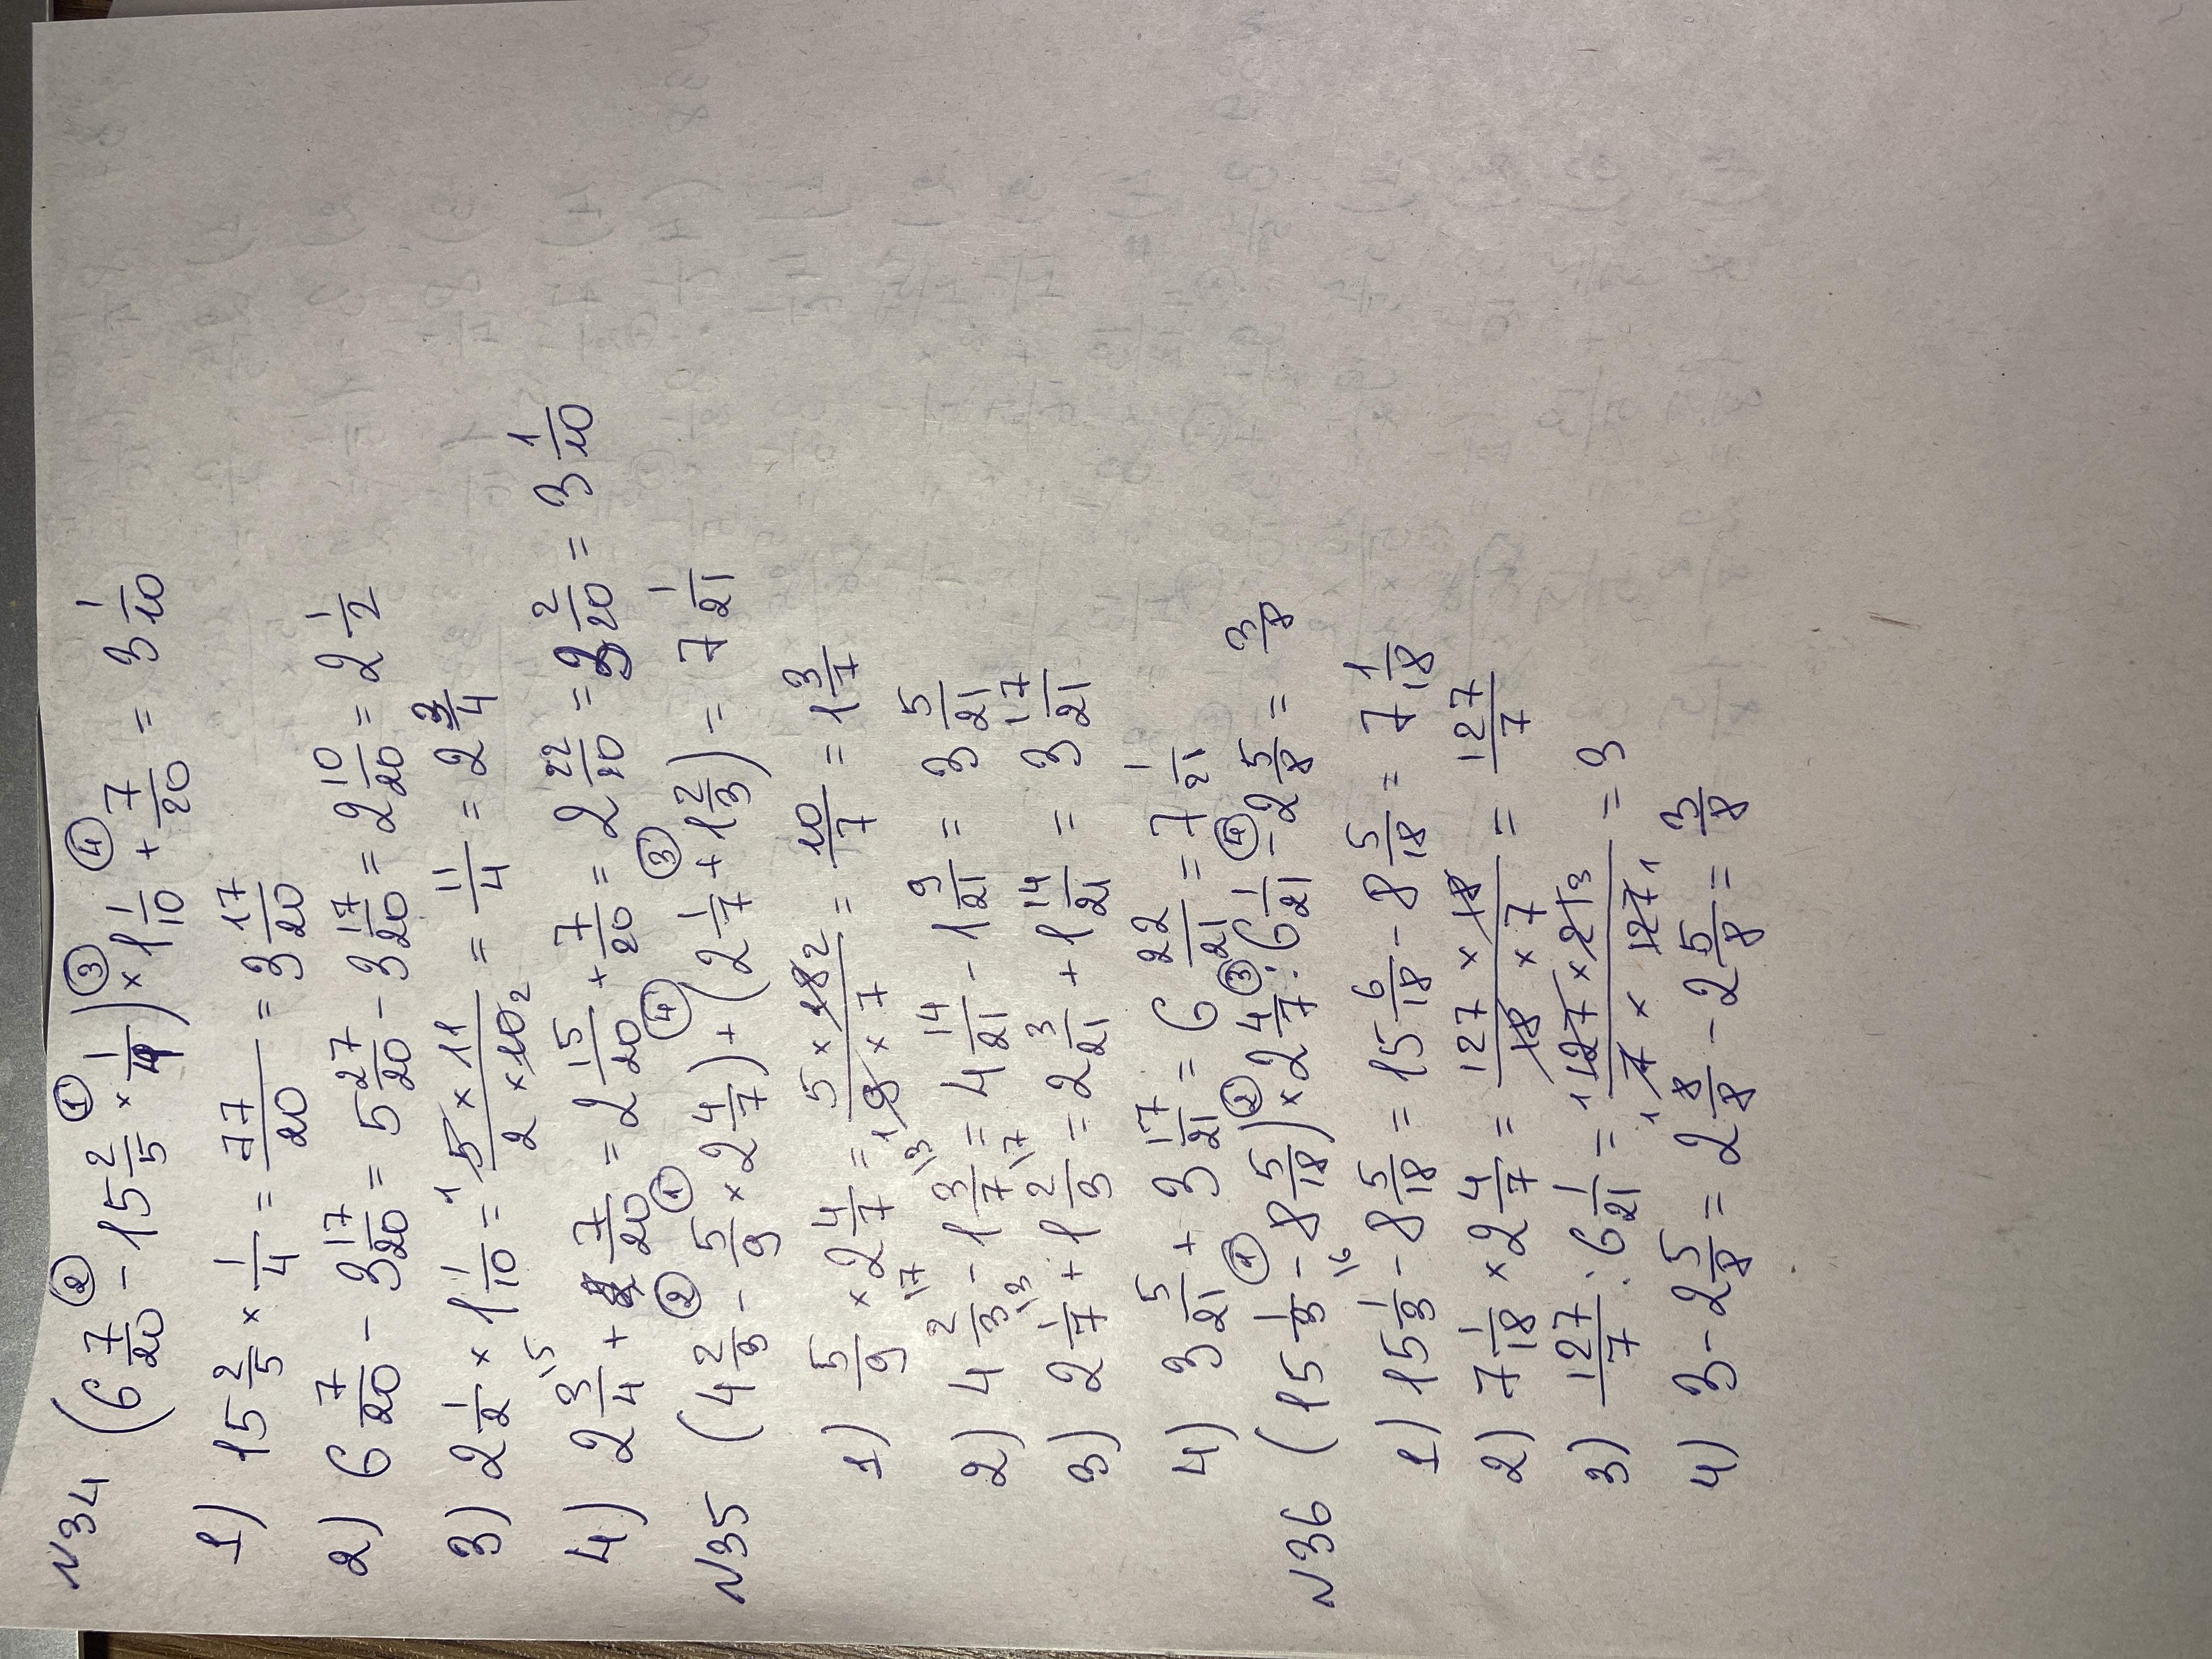 N34 (6 7/20 - 15 2/5 × 1/4) × 1 1/10 + 7/20 = 3 1/10
② ① ③ ④
1) 15 2/5 × 1/4 = 77/20 = 3 17/20
2) 6 7/20 - 3 17/20 = 5 27/20 - 3 17/20 = 2 10/20 = 2 1/2
3) 2 1/2 × 1 1/10 = 5 × 11 / 2 × 10 = 11/4 = 2 3/4
4) 2 3/4 + 7/20 = 2 15/20 + 7/20 = 2 22/20 = 3 2/20 = 3 1/10
② ① ④ ③
N35 (4 2/3 - 5/9 × 2 4/7) + (2 1/7 + 1 2/3) = 7 1/21
1) 5/9 × 2 4/7 = 5 × 18 / 9 × 7 = 10/7 = 1 3/7
2) 4 2/3 - 1 3/7 = 4 14/21 - 1 9/21 = 3 5/21
3) 2 1/7 + 1 2/3 = 2 3/21 + 1 14/21 = 3 17/21
4) 3 5/21 + 3 17/21 = 6 22/21 = 7 1/21
① ② ③ ④
N36 (15 1/3 - 8 5/18) × 2 4/7 : 6 1/21 - 2 5/8 = 3/8
1) 15 1/3 - 8 5/18 = 15 6/18 - 8 5/18 = 7 1/18
2) 7 1/18 × 2 4/7 = 127 × 18 / 18 × 7 = 127/7
3) 127/7 : 6 1/21 = 127 × 21 / 7 × 127 = 3
4) 3 - 2 5/8 = 2 8/8 - 2 5/8 = 3/8